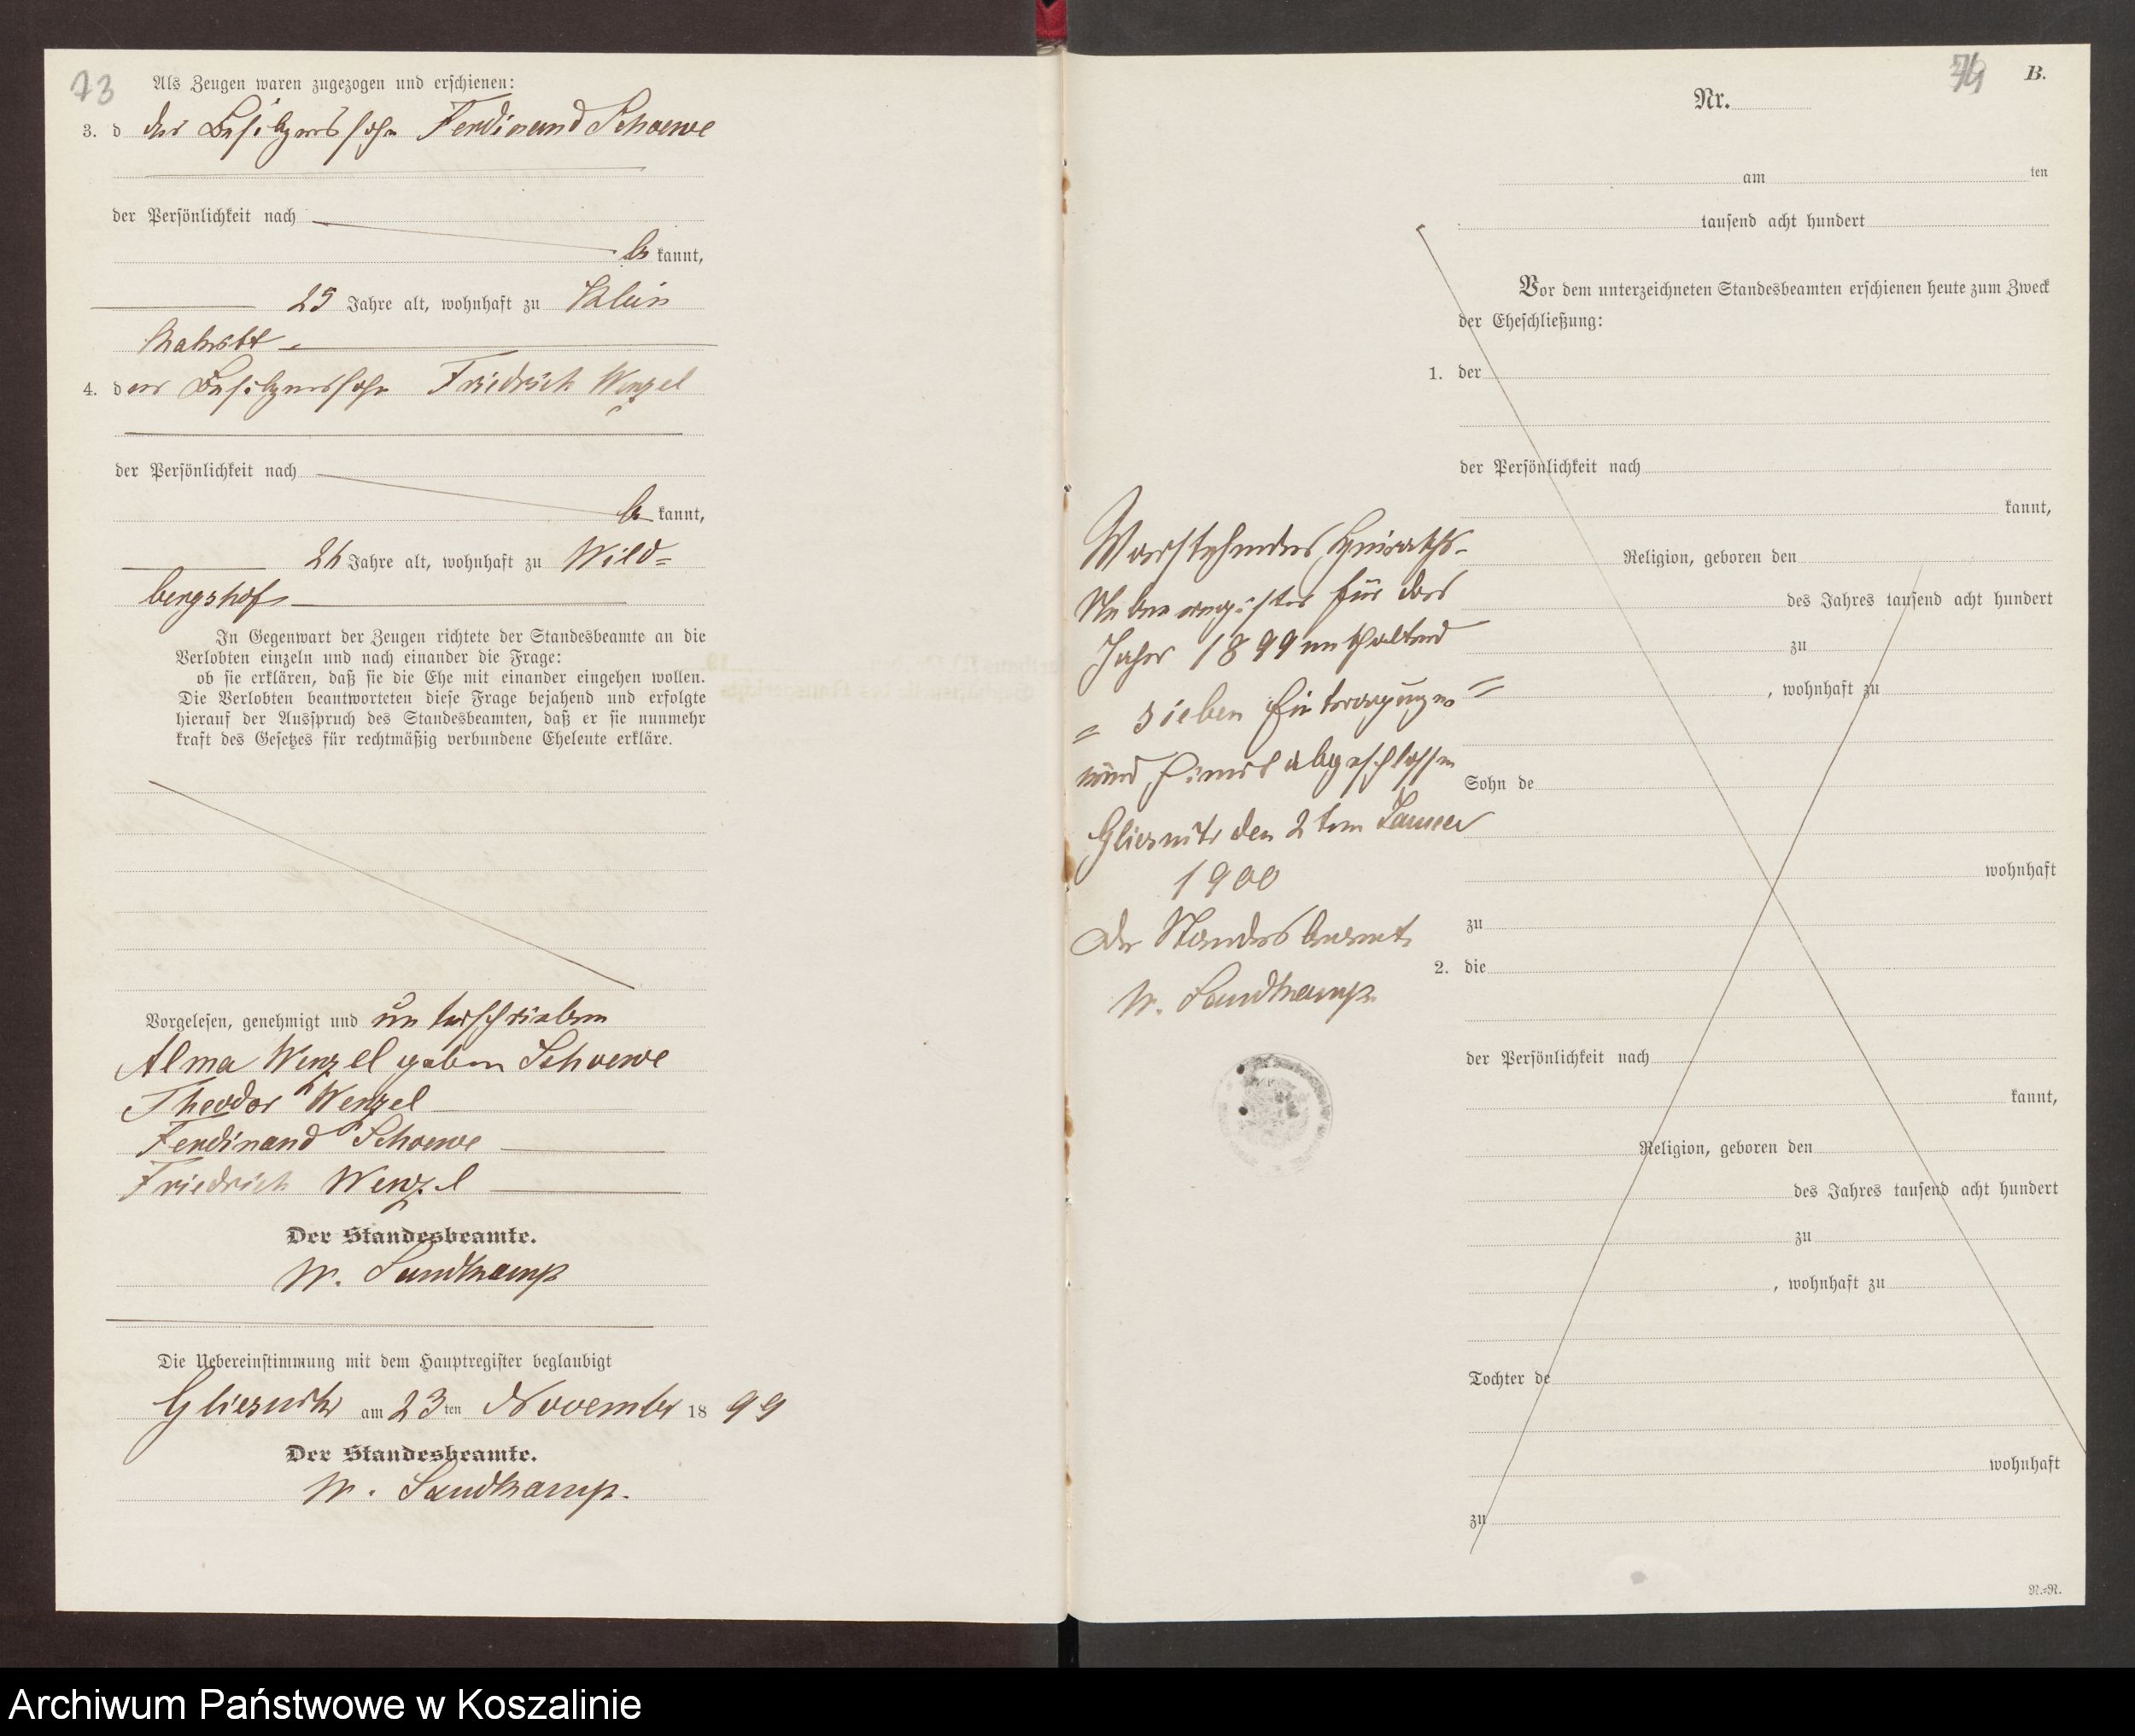 73
Als Zeugen waren zugezogen und erschienen:
3. d der Besitzerssohn Ferdinand Schoewe
der Persönlichkeit nach
be kannt,
25 Jahre alt, wohnhaft zu Klein
4. d er Besitzerssohn Friedrich Wenzel
der Persönlichkeit nach
be kannt,
26 Jahre alt, wohnhaft zu Wild=
bergshof
In Gegenwart der Zeugen richtete der Standesbeamte an die
Verlobten einzeln und nach einander die Frage:
ob sie erklären, daß sie die Ehe mit einander eingehen wollen.
Die Verlobten beantworteten diese Frage bejahend und erfolgte
hierauf der Ausspruch des Standesbeamten, daß er sie nunmehr
kraft des Gesetzes für rechtmäßig verbundene Eheleute erkläre.
Vorgelesen, genehmigt und unterschrieben
Alma Wenzel geboren Schoewe
Theodor Wenzel
Ferdinand Schoewe
Friedrich Wenzel
Der Standesbeamte.
W. Sandkamp
Die Uebereinstimmung mit dem Hauptregister beglaubigt
Gliesnitz am 23 ten November 18 99
Der Standesbeamte.
W. Sandkamp.
Vorstehendes Heiraths-
Nebenregister für das
Jahr 1899 enthaltend
= sieben Eintragungen =
wird hiermit abgeschlossen
Gliesnitz den 2 ten Januar
1900
Der Standesbeamte
W. Sandkamp.
74
B.
Nr.
am ten
tausend acht hundert
Vor dem unterzeichneten Standesbeamten erschienen heute zum Zweck
der Eheschließung:
1. der
der Persönlichkeit nach
kannt,
Religion, geboren den
des Jahres tausend acht hundert
zu
, wohnhaft zu
Sohn de
wohnhaft
zu
2. die
der Persönlichkeit nach
kannt,
Religion, geboren den
des Jahres tausend acht hundert
zu
, wohnhaft zu
Tochter de
wohnhaft
zu
N.=N.
Archiwum Państwowe w Koszalinie